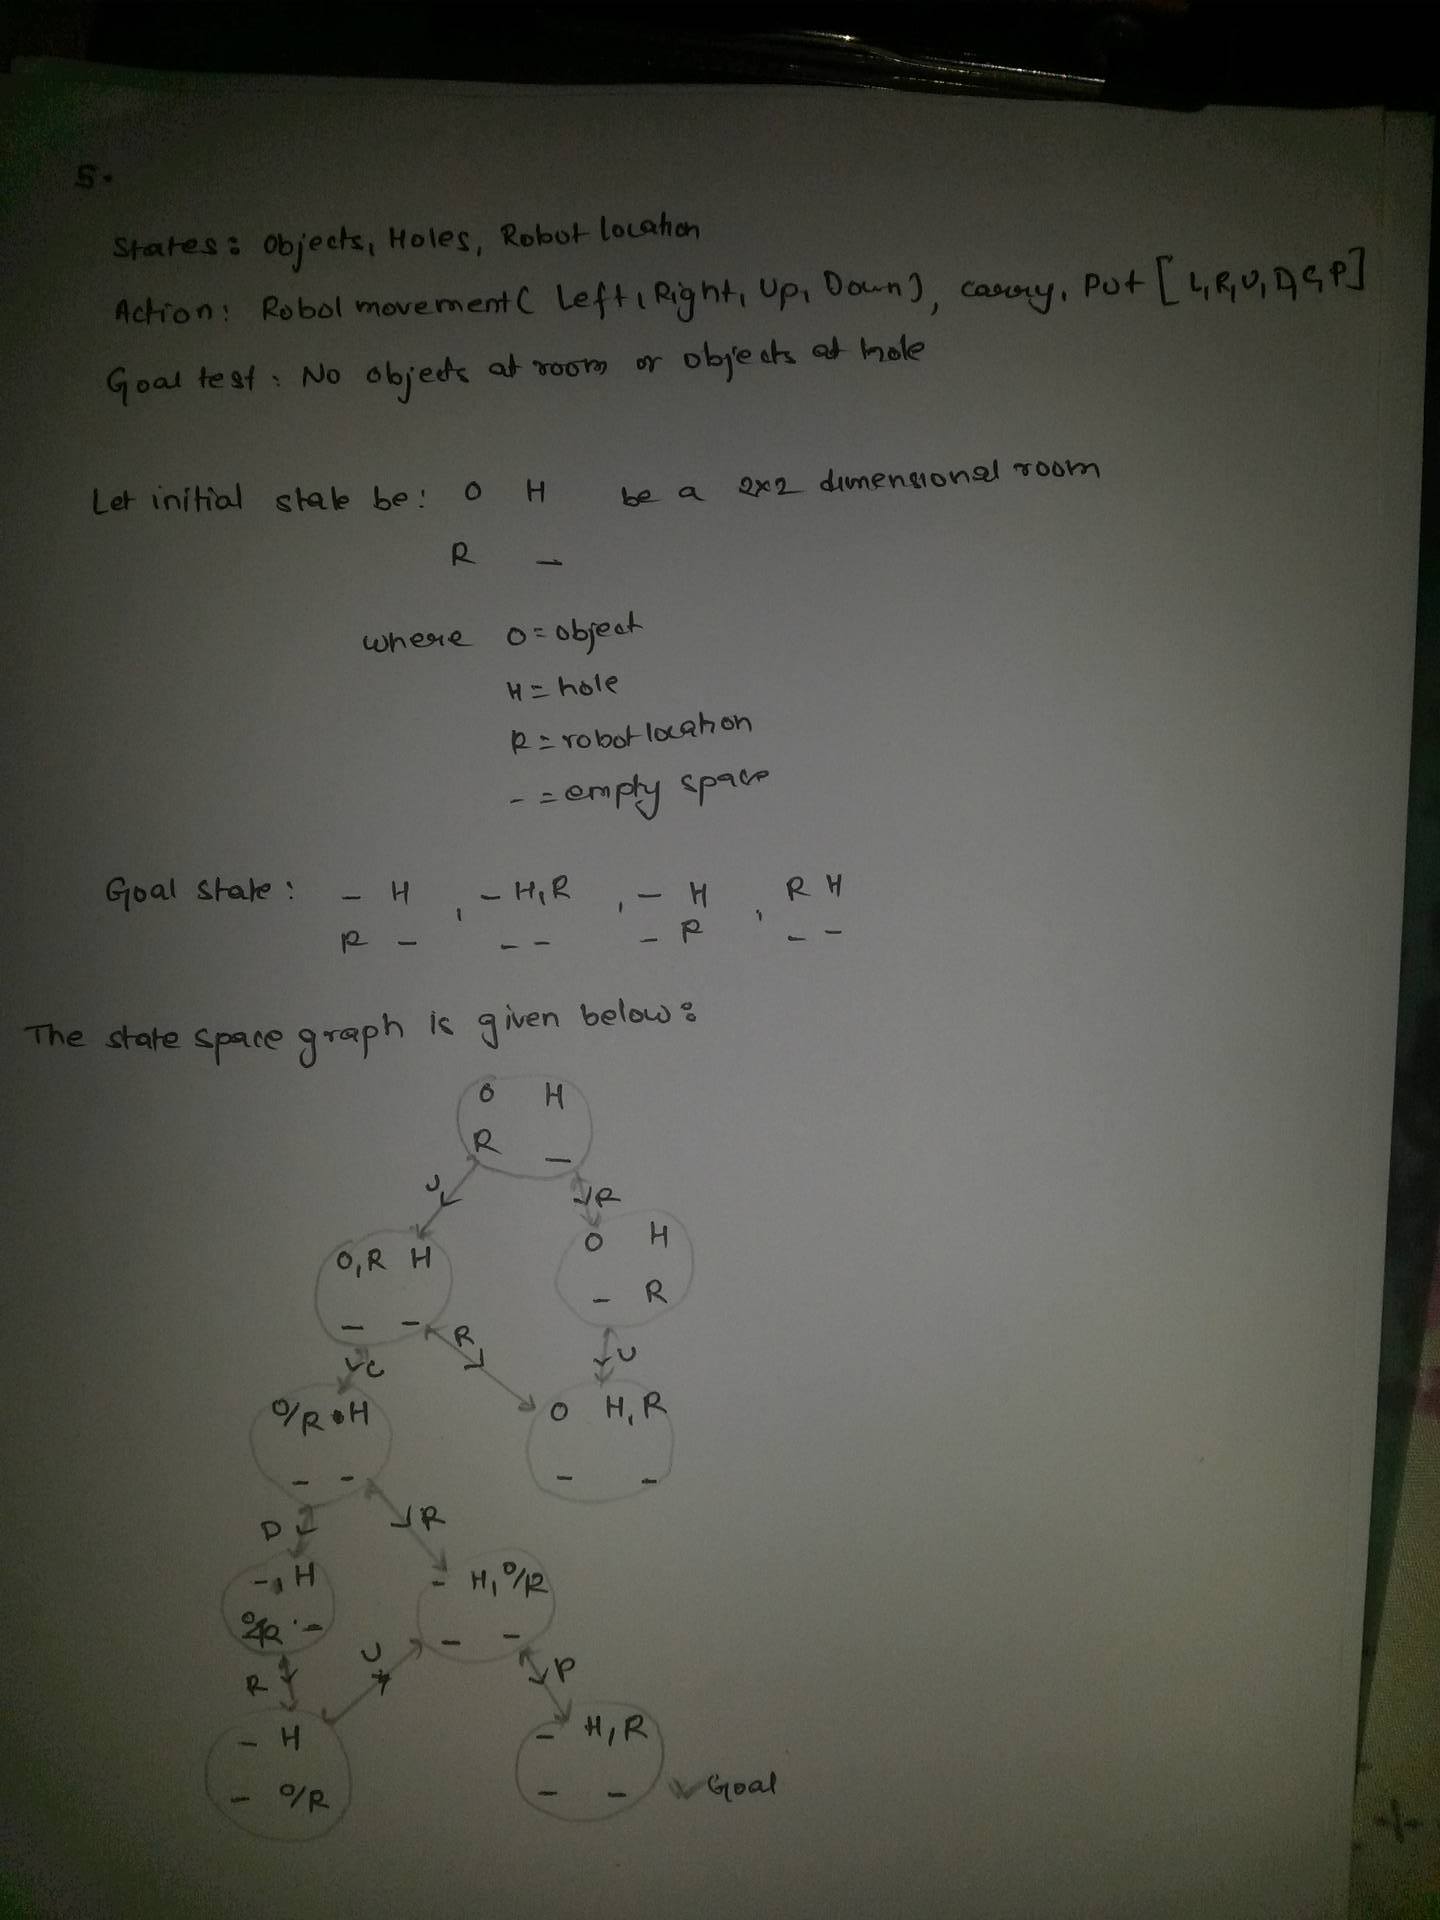 5.
States: Objects, Holes, Robot location
Action: Robol movement( Left, Right, Up, Down), carry, Put [L,R,U,D,C,P]
Goal test: No objects at room or objects at hole
Let initial state be: O H be a 2x2 dimensional room
R -
where O = object
H = hole
R = robot location
- = empty space
Goal state: - H , - H,R , - H , R H
R - - - - R - -
The state space graph is given below:
O H
R -
U R
O,R H
- -
O H
- R
C R U
O/R H
- -
O H,R
- -
D R
-, H
O/R -
- H,O/R
- -
R U P
- H
- O/R
- H,R
- -
Goal